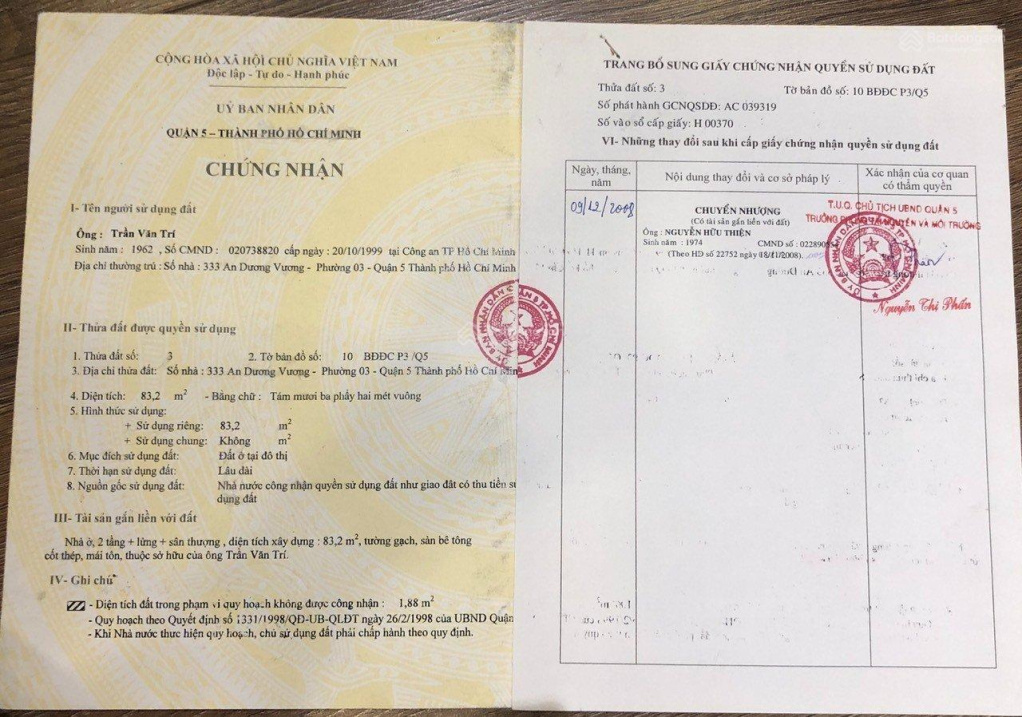 CỘNG HÒA XÃ HỘI CHỦ NGHĨA VIỆT NAM
Độc lập - Tự do - Hạnh phúc
UỶ BAN NHÂN DÂN
QUẬN 5 – THÀNH PHỐ HỒ CHÍ MINH
CHỨNG NHẬN
I- Tên người sử dụng đất
Ông : Trần Văn Trí
Sinh năm : 1962 , Số CMND : 020738820 cấp ngày : 20/10/1999 tại Công an TP Hồ Chí Minh
Địa chỉ thường trú : Số nhà : 333 An Dương Vương - Phường 03 - Quận 5 Thành phố Hồ Chí Minh
II- Thửa đất được quyền sử dụng
1. Thửa đất số: 3 2. Tờ bản đồ số: 10 BĐĐC P3 /Q5
3. Địa chỉ thửa đất: Số nhà : 333 An Dương Vương - Phường 03 - Quận 5 Thành phố Hồ Chí Minh
4. Diện tích: 83,2 m² - Bằng chữ : Tám mươi ba phẩy hai mét vuông
5. Hình thức sử dụng:
+ Sử dụng riêng: 83,2 m²
+ Sử dụng chung: Không m²
6. Mục đích sử dụng đất: Đất ở tại đô thị
7. Thời hạn sử dụng đất: Lâu dài
8. Nguồn gốc sử dụng đất: Nhà nước công nhận quyền sử dụng đất như giao đât có thu tiền sử
dụng đất
III- Tài sản gắn liền với đất
Nhà ở, 2 tầng + lửng + sân thượng , diện tích xây dựng : 83,2 m², tường gạch, sàn bê tông
cốt thép, mái tôn, thuộc sở hữu của ông Trần Văn Trí.
IV- Ghi chú
- Diện tích đất trong phạm vi quy hoạch không được công nhận : 1,88 m²
- Quy hoạch theo Quyết định số 1331/1998/QĐ-UB-QLĐT ngày 26/2/1998 của UBND Quận
- Khi Nhà nước thực hiện quy hoạch, chủ sử dụng đất phải chấp hành theo quy định.
TRANG BỔ SUNG GIẤY CHỨNG NHẬN QUYỀN SỬ DỤNG ĐẤT
Thửa đất số: 3 Tờ bản đồ số: 10 BĐĐC P3/Q5
Số phát hành GCNQSDĐ: AC 039319
Số vào sổ cấp giấy: H 00370
VI- Những thay đổi sau khi cấp giấy chứng nhận quyền sử dụng đất
Ngày, tháng, năm
Nội dung thay đổi và cơ sở pháp lý
Xác nhận của cơ quan có thẩm quyền
09/12/2008
CHUYỂN NHƯỢNG
(Có tài sản gắn liền với đất)
Ông : NGUYỄN HỮU THIỆN
Sinh năm : 1974 CMND số :
(Theo HĐ số 22752 ngày 18/11/2008).
T.U.Q. CHỦ TỊCH UBND QUẬN 5
TRƯỞNG PHÒNG TÀI NGUYÊN VÀ MÔI TRƯỜNG
Nguyễn Thị Phấn